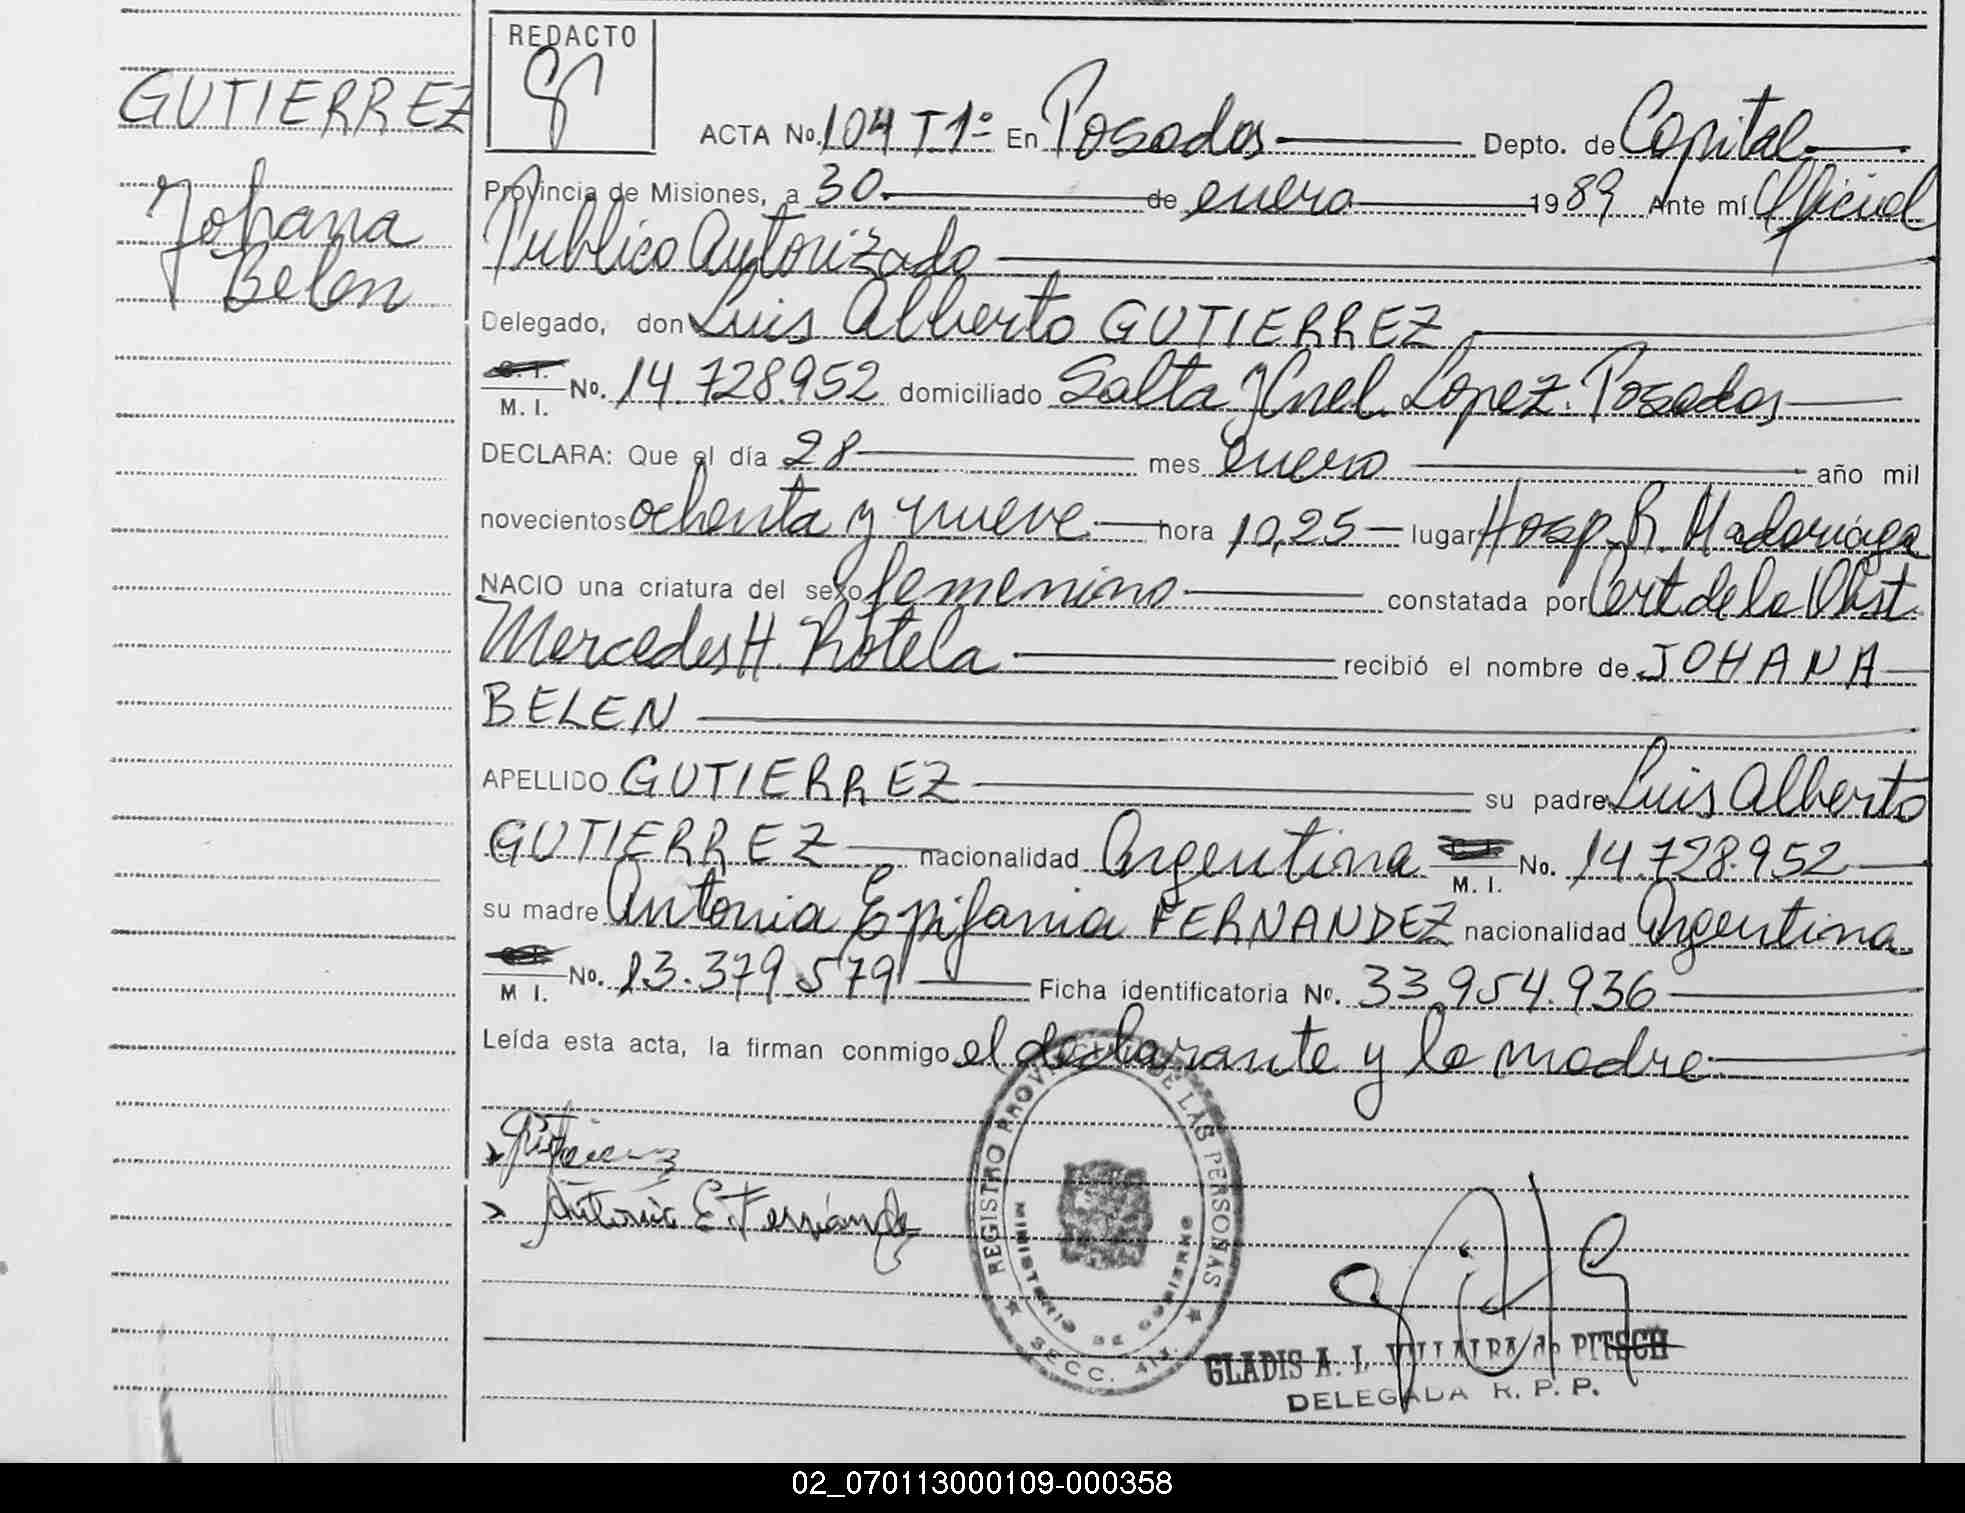 GUTIERREZ
Johana
Belen
REDACTO
ACTA No. 104 T.1º En Posadas Depto. de Capital
Provincia de Misiones, a 30 de enero 1989 Ante mí Oficial
Publico Autorizado
Delegado, don Luis Alberto GUTIERREZ
C. I.
M. I. No. 14.728.952 domiciliado Salta y Cnel. Lopez. Posadas
DECLARA: Que el día 28 mes enero año mil
novecientos ochenta y nueve hora 10,25 lugar Hosp. R. Madariaga
NACIO una criatura del sexo femenino constatada por Cert. de la Obst.
Mercedes H. Rotela recibió el nombre de JOHANA
BELEN
APELLIDO GUTIERREZ su padre Luis Alberto
GUTIERREZ nacionalidad Argentina M. I. No. 14.728.952
su madre Antonia Epifania FERNANDEZ nacionalidad Argentina
M I. No. 13.379.579 Ficha identificatoria No. 33.954.936
Leída esta acta, la firman conmigo el declarante y la madre
Gutierrez
Antonia E. Fernández
REGISTRO PROVINCIAL DE LAS PERSONAS
MINISTERIO DE GOBIERNO
SECC.
GLADIS A. I. VILLALBA de PITSCH
DELEGADA R. P. P.
02_070113000109-000358